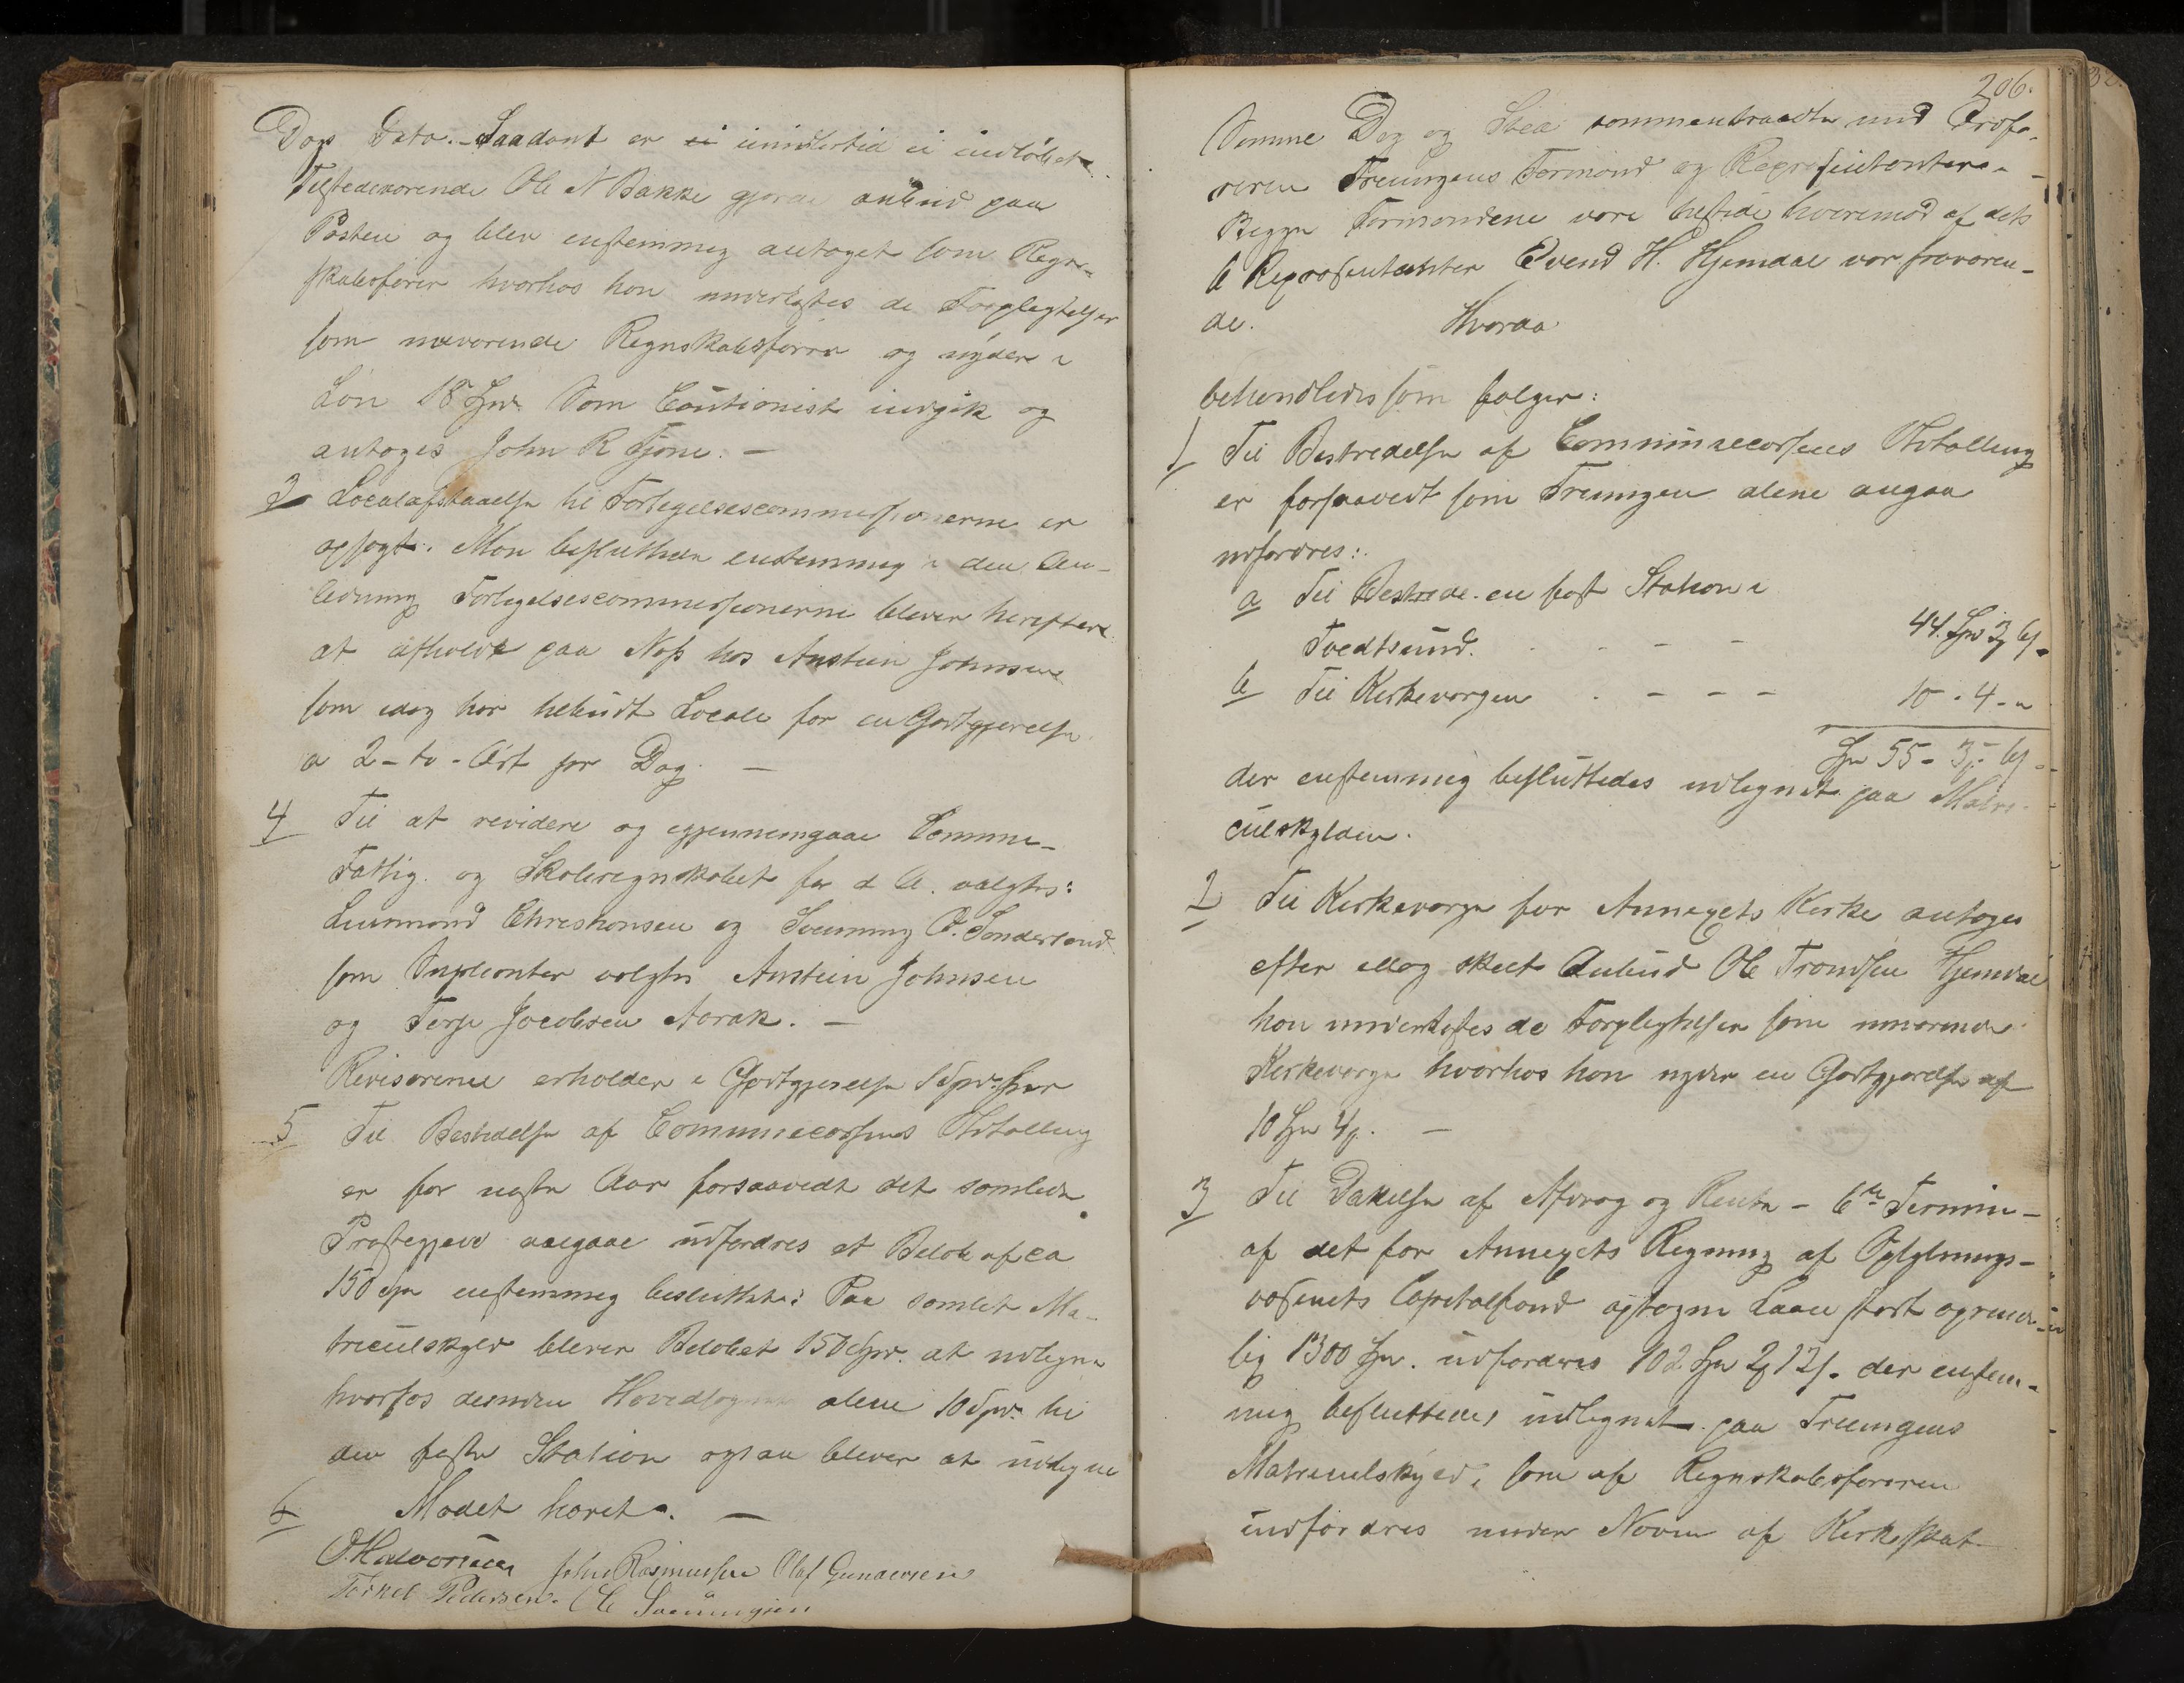 Dags Dato. Saadant er ei imidlertid ei indløbet.
Tilstedeværende Ole N Bakke gjorde anbud paa
Posten og blev enstemmig antaget som Regn-
skabsfører hvorhos han underlagdes de Forpligtelser
som nuværende Regnskabsfører og nyder i
Løn 18 Spd. Som Cautionist indgik og
antoges John R Tjøne. —
3 Localafstaaelse til Forligelsescommissionerne er
opsagt. Man besluttede enstemmig i den An-
ledning Forligelsescommissionerne bliver herefter
at afholde paa Næs hos Anstein Johnsen
som idag har tilbudt Locale for en Godtgjørelse
a 2 - to - Ort pr Dag. —
4 Til at revidere og gjennemgaae Commune-
Fattig- og Skoleregnskabet for d A. valgtes:
Lensmand Christionsen og Svenning O. Sønderland
som Supleanter valgtes Anstein Johnsen
og Terje Jacobsen Aarak. —
Revisorene erholder i Godtgjørelse 1 Spd. hver
5 Til Bestridelse af Communecassens Udtælling
er for næste Aar forsaavidt det samlede
Præstegjeld angaae udfordres et Beløb af ca
150 Spd enstemmig besluttet: Paa samlet Ma-
triculskyld bliver Beløbet 150 Spd. at udligne
hvorhos desuden Hovedsognet alene 10 Spd. til
den faste Station ogsaa bliver at udligne
6 Mødet hævet. —
O. Halvorsen John Rasmussen Olaf Gundersen
Torkel Pedersen. Ole Svenningsen
206.
Samme Dag og Sted sammentraadte med Ordfø-
reren Treungens Formænd og Repræsentantere.
Begge Formændene vare tilstede hvorimod af dets
6 Repræsentanter Evend H. Hjemdal var fraværen-
de. Hvorda
behandledes som følger:
1 Til Bestridelse af Communecassens Udtælling
er forsaavidt som Treungen alene angaa
udfordres:
a Til Bestride en fast Station i
Tvedtsund. - - - 44. Spd 3 6
b Til Kirkevergen - - - - 10 - 4 -
Spd 55 - 3 - 6
der enstemmig besluttedes udlignet paa Matri-
culskylden.
2 Til Kirkeverge for Annexets Kirke antoges
efter idag skeet Anbud Ole Trondsen Hjemdal
han underlagdes de Forpligtelser som nuværende
Kirkeverge hvorhos han nyder en Godtgjørelse af
10 Spd 4. —
3 Til Dækelse af Afdrag og Rente - 6te Termin -
af det for Annexets Regning af Oplysnings-
væsenets Capitalfond optagne Laan stort oprinde-
lig 1300 Spd. udfordres 102 Spd 2 12. der enstem-
mig besluttedes udlignet paa Treungens
Matriculskyld, som af Regnskabsføreren
indfordres under Navn af Kirkeskat.